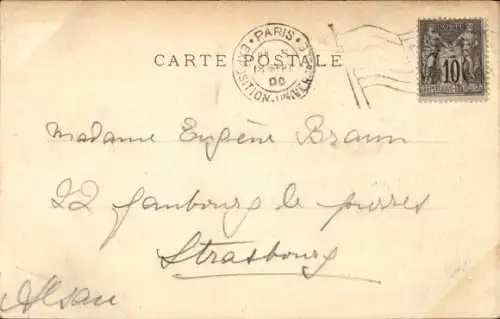 PARIS
EXPOSITION UNIVERSELLE
00
CARTE POSTALE
10
Madame Eugène Braun
22 faubourg de pierres
Strasbourg
Alsace